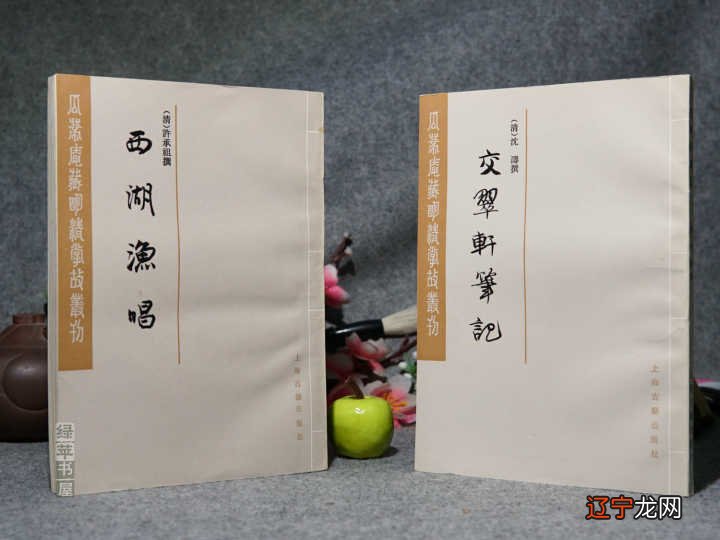 瓜蒂庵藏明清掌故叢刊
(清)許承祖撰
西湖漁唱
上海古籍出版社
瓜蒂庵藏明清掌故叢刊
(清)沈 濤撰
交翠軒筆記
上海古籍出版社
绿苹书屋
辽宁龙网